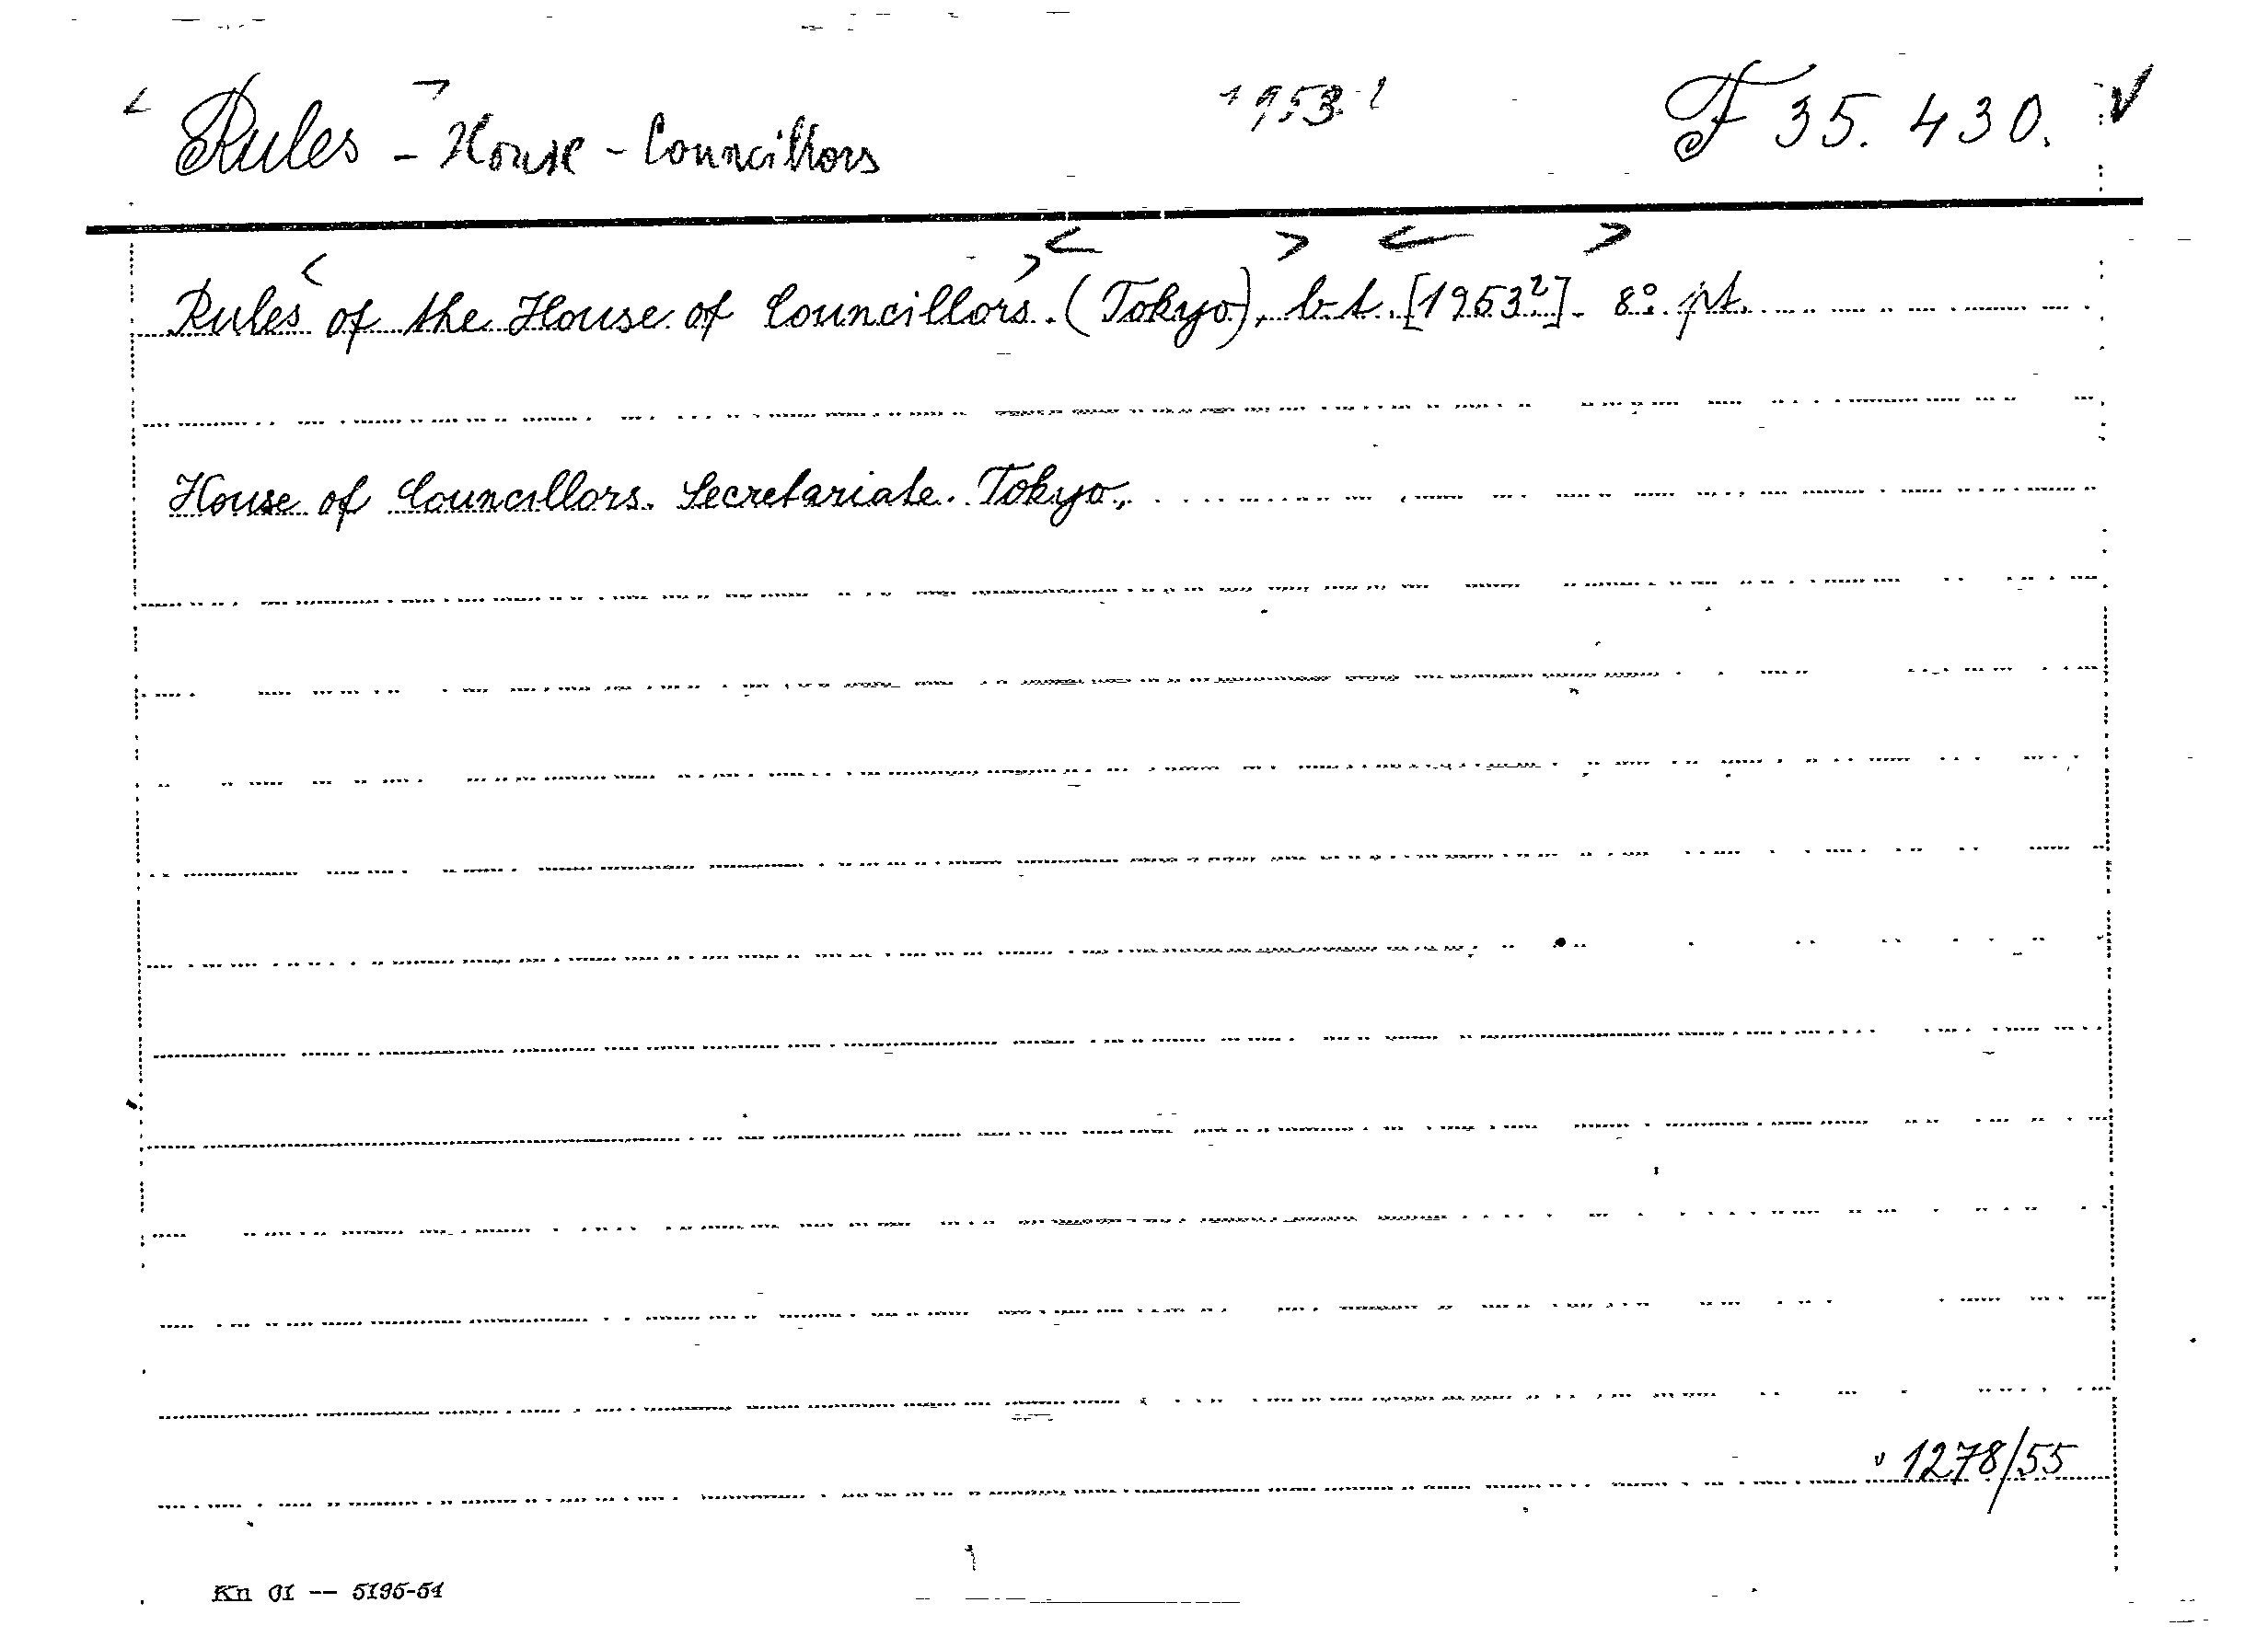 Rules - House - Councillors 1953.² F 35.430.
Rules of the House of Councillors. (Tokyo), b.t. [1953²]. 8° pt.
House of Councillors. Secretariate. Tokyo.
1278/55
Kn 01 -- 5195-54